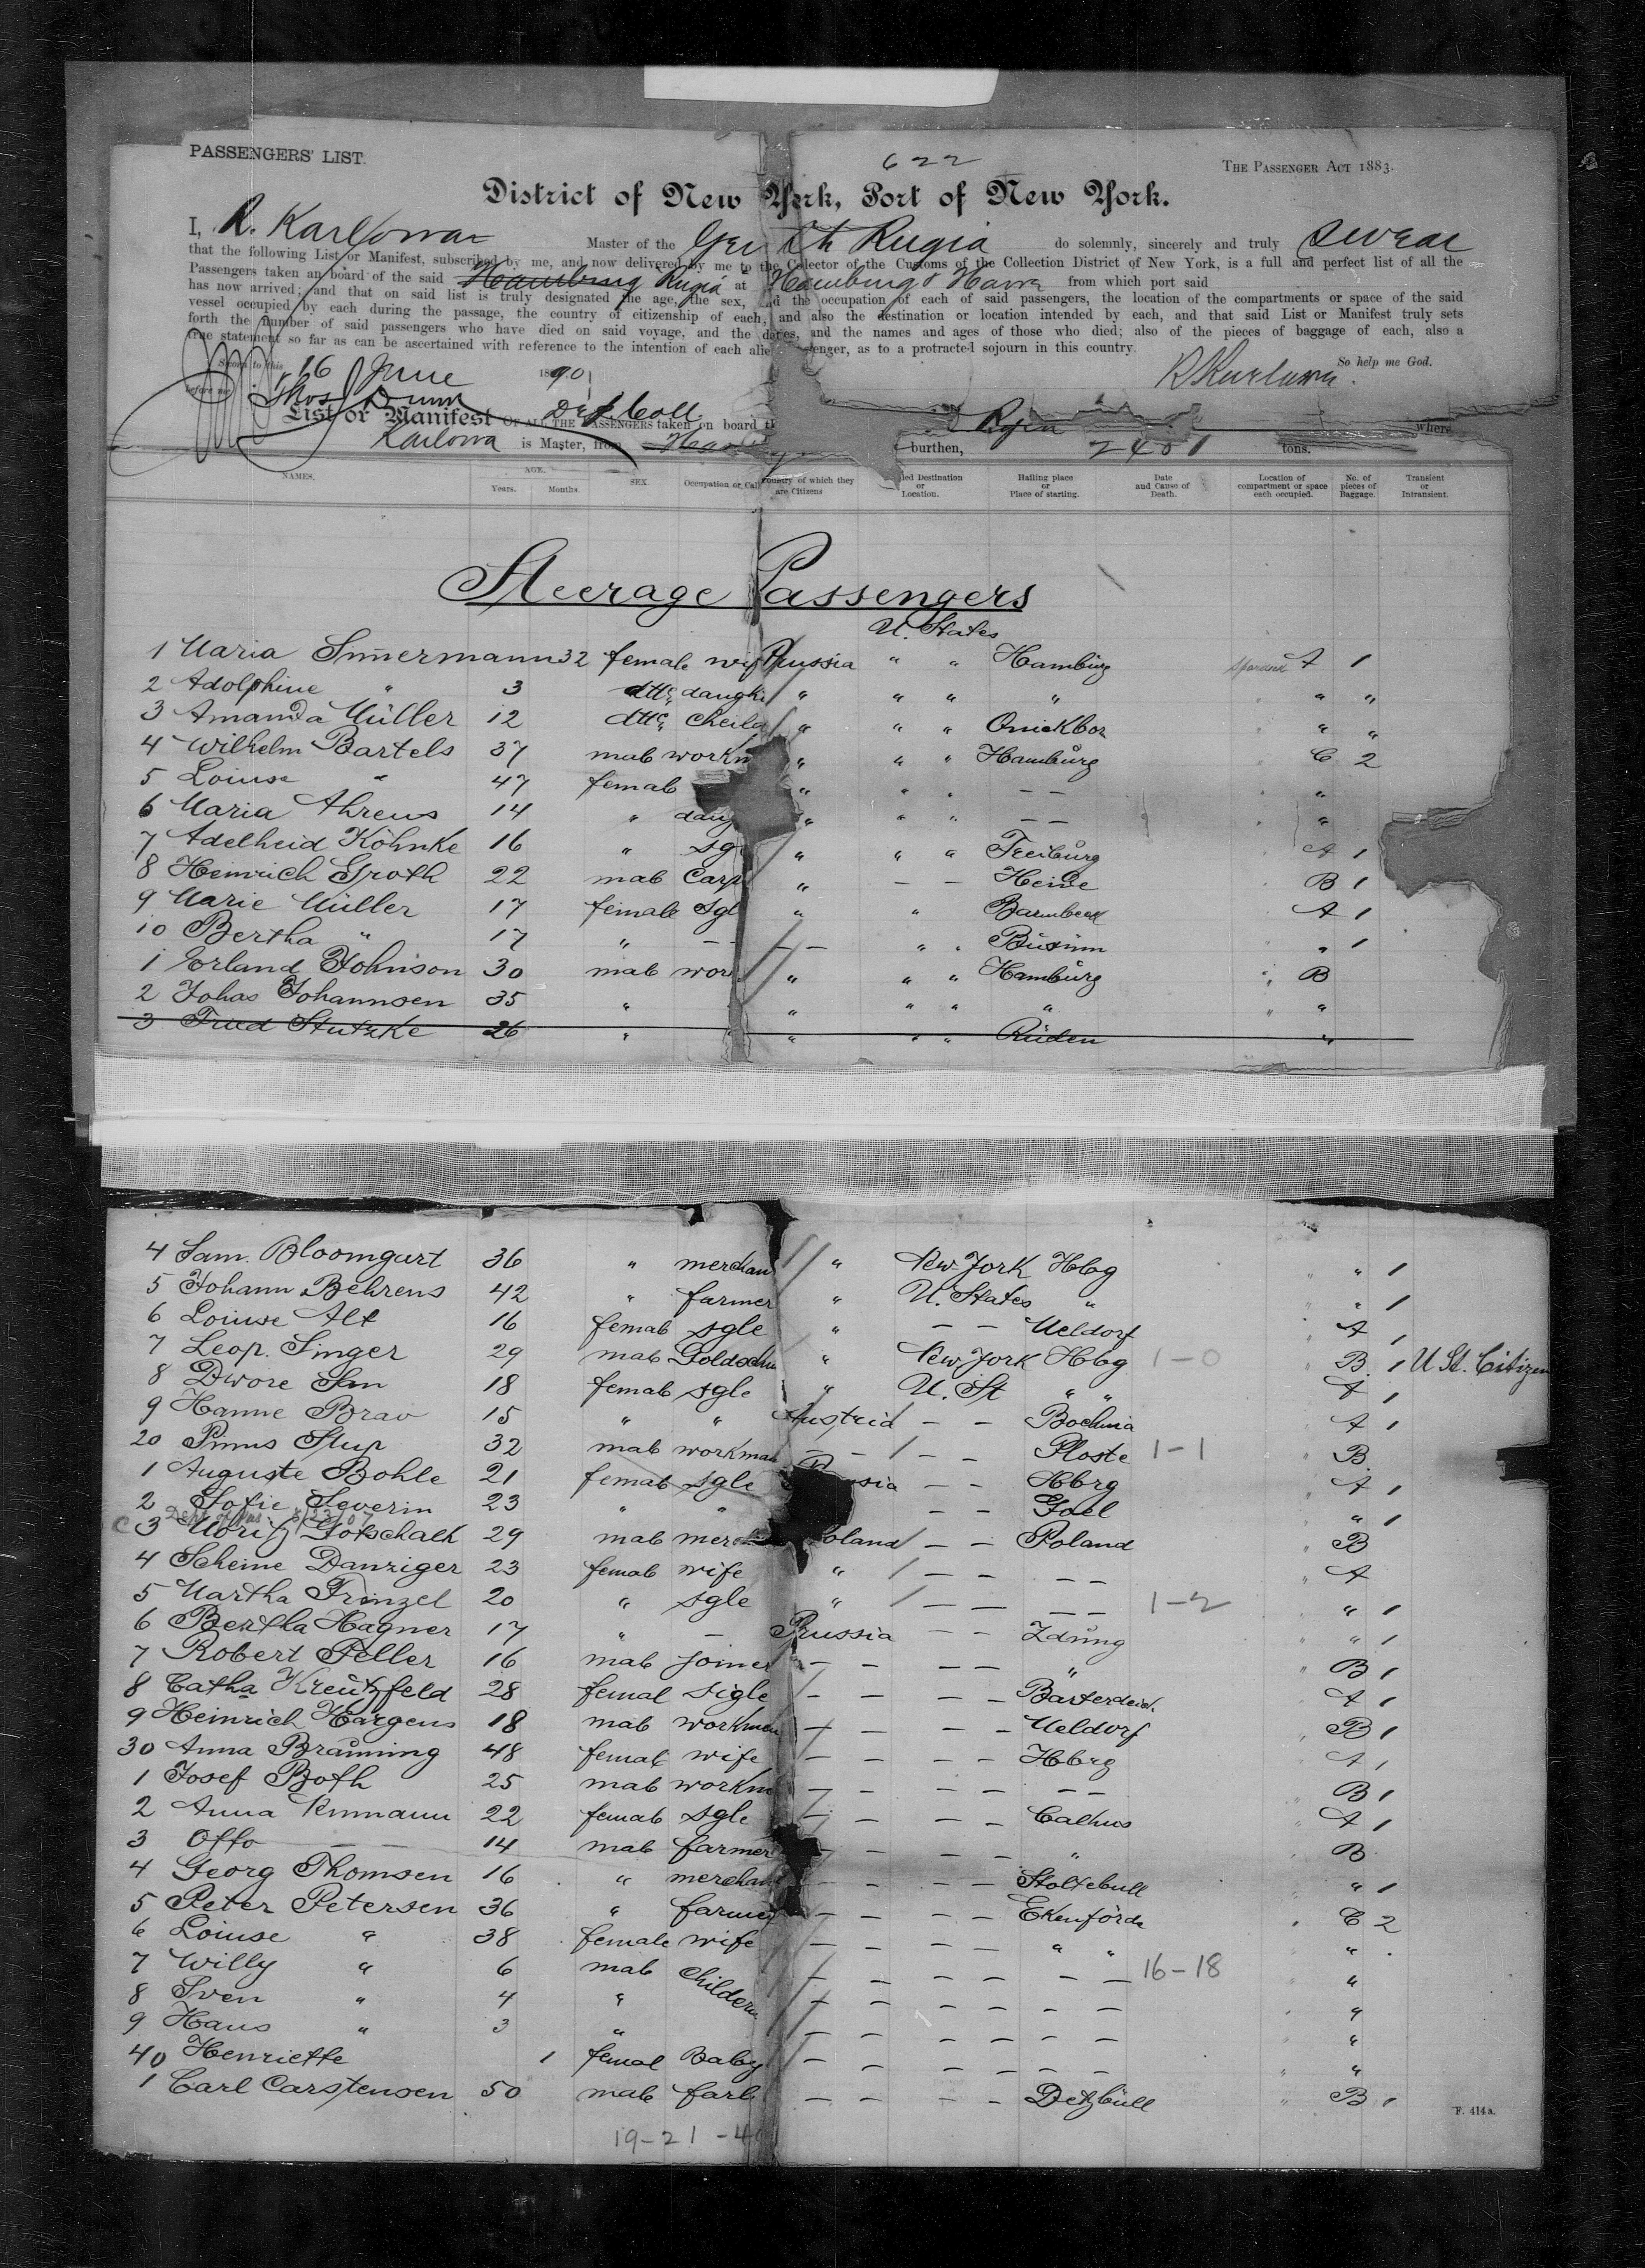 PASSENGERS' LIST.
622
THE PASSENGER ACT 1883.
District of New York, Port of New York.
I, R. Karlowa Master of the Ger Rugia do solemnly, sincerely and truly swear
that the following List or Manifest, subscribed by me, and now delivered by me to the Colector of the Customs of the Collection District of New York, is a full and perfect list of all the
Passengers taken an board of the said Hamburg Rugia at Hamburg & Havre from which port said
has now arrived; and that on said list is truly designated the age, the sex, and the occupation of each of said passengers, the location of the compartments or space of the said
vessel occupied by each during the passage, the country of citizenship of each, and also the destination or location intended by each, and that said List or Manifest truly sets
forth the number of said passengers who have died on said voyage, and the dates, and the names and ages of those who died; also of the pieces of baggage of each, also a
true statement so far as can be ascertained with reference to the intention of each alie senger, as to a protracted sojourn in this country.
So help me God.
Sworn to this 16 June 1890
R Karlowa.
before me Thos Dunn Dep Coll
List or Manifest OF ALL THE PASSENGERS taken on board Rugia where
Karlowa is Master, from burthen, 2401 tons.
NAMES. AGE. Years. Months. SEX. Occupation or Call Country of which they are Citizens ded Destination or Location. Hailing place or Place of starting. Date and Cause of Death. Location of compartment or space each occupied. No. of pieces of Baggage. Transient or Intransient.
Steerage Passengers
U. States
1 Maria Simermann 32 female wif Prussia " " Hamburg A 1
2 Adolphine " 3 ditto daught " " " " " "
3 Amanda Müller 12 ditto cheild " " " " "
4 Wilhelm Bartels 37 male workm " " " Hamburg C 2
5 Louise " 47 female " " " — — "
6 Maria Ahrens 14 " daug " " " — — "
7 Adelheid Köhnke 16 " sg " " " Freiburg A 1
8 Heinrich Groth 22 male Carp " — — Heide B 1
9 Marie Müller 17 female sgl " " Barmbeck A 1
10 Bertha " 17 " — — — — " " Büsum " 1
1 Erland Johnson 30 male wor " " " Hamburg " B
2 Johas Johannsen 35 " " " " " " "
3 Fried Stutzke 26 " " " " Rüden "
4 Sam. Bloomgurt 36 " merchan " New York Hbg " " 1
5 Johann Behrens 42 " farmer " U. States " " " 1
6 Louise Alt 16 female sgle " — — Meldorf " A 1
7 Leop. Singer 29 male Goldschm " New York Hbg 1-0 " B. 1 U St. Citizen
8 Dwore San 18 female sgle " U. St " " A 1
9 Hanne Brav 15 " " Austria — — Bochnia A 1
20 Pinus Slup 32 male workman — — — — Ploste 1-1 " B.
1 Auguste Bohle 21 female sgle ssia — — Hbrg " A 1
2 Sofie Severin 23 " " — — " 1
c 3 Moritz Gotschalk 29 male mer oland — — Poland " B
4 Scheine Danziger 23 female wife " — — — — " A
5 Martha Frinzel 20 " sgle " — — — — 1-2 " 1
6 Bertha Hagner 17 " — Prussia — — Zduny " " 1
7 Robert Peller 16 male joiner — — — — " " B 1
8 Catha Kreützfeld 28 femal sigle — — — — Barterdeich. A 1
9 Heinrich Hargens 18 male workman — — — — Meldorf " B 1
30 Anna Braüning 48 female wife — — — — Hbrg " A 1
1 Josef Both 25 male workm — — — — — — " B 1
2 Anna 22 female sgle — — — — " A 1
3 Otto — — 14 male farmer — — — — " " B
4 Georg Thomsen 16 " merchan — — — — Stoltebüll " " 1
5 Peter Petersen 36 " farmer — — — — Ekenförde " C 2
6 Louise " 38 female wife — — — — " " "
7 Willy " 6 male childern — — — — — — 16-18 " "
8 Sven " 4 " — — — — — — " "
9 Hans " 3 " — — — — — — "
40 Henriette 1 femal Baby — — — — — — " "
1 Carl Carstensen 50 male farb — — — — Detzbüll " B 1
F. 414a.
19-21-4